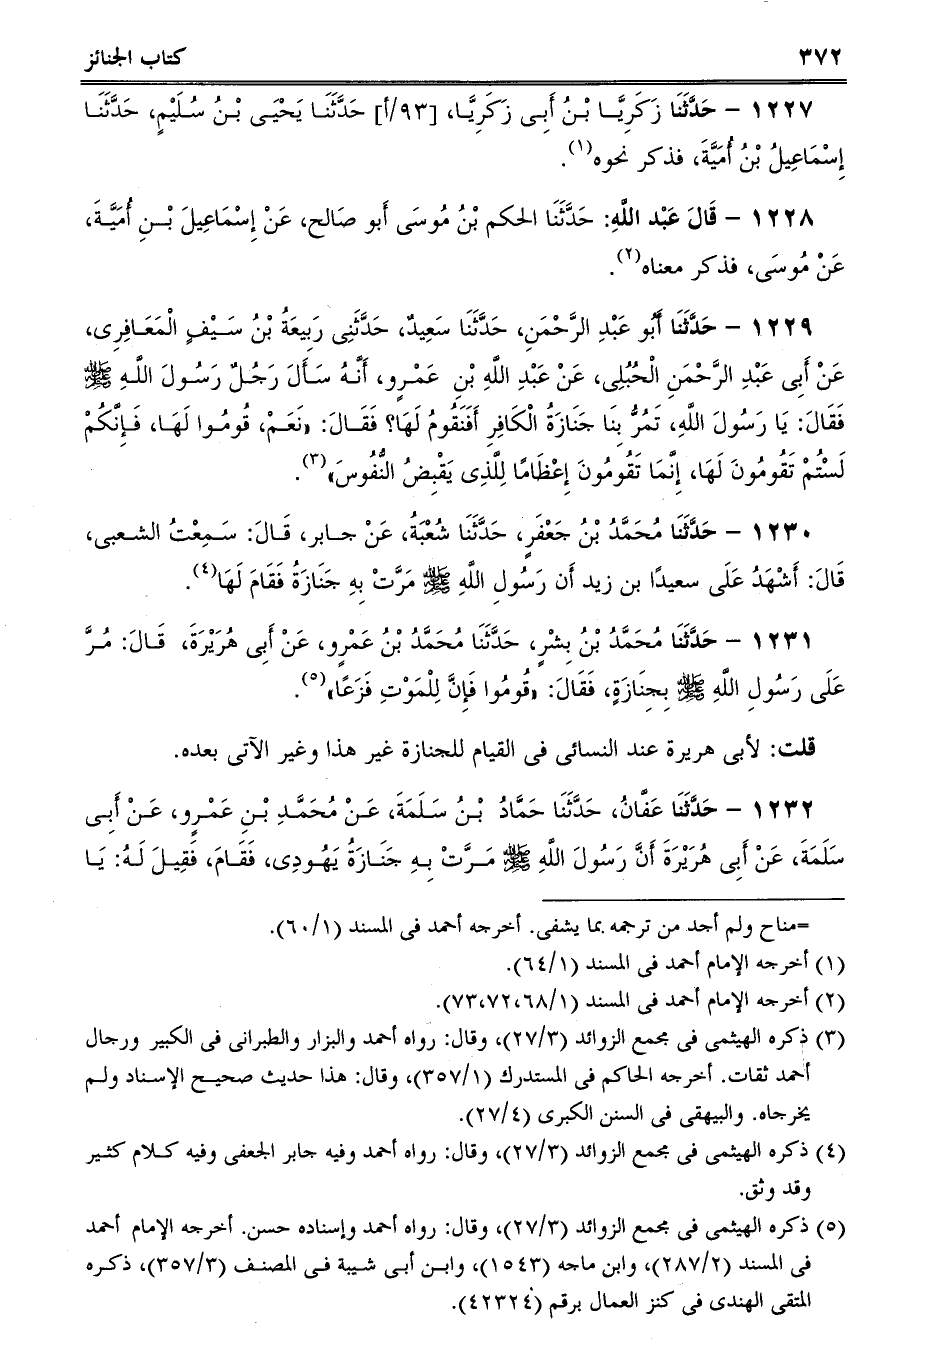 ٣٧٢ كتاب الجنائز
١٢٢٧ – حَدَّثَنَا زَكَرِيَّا بْنُ أَبِى زَكَرِيَّا، [٩٣/أ] حَدَّثَنَا يَحْيَى بْنُ سُلَيْمٍ، حَدَّثَنَا
إِسْمَاعِيلُ بْنُ أُمَيَّةَ، فذكر نحوه(١).
١٢٢٨ – قَالَ عَبْد اللَّهِ: حَدَّثَنَا الحكم بْنُ مُوسَى أبو صالح، عَنْ إِسْمَاعِيلَ بْنِ أُمَيَّةَ،
عَنْ مُوسَى، فذكر معناه(٢).
١٢٢٩ – حَدَّثَنَا أَبُو عَبْدِ الرَّحْمَنِ، حَدَّثَنَا سَعِيدٌ، حَدَّثَنِى رَبِيعَةُ بْنُ سَيْفٍ الْمَعَافِرِى،
عَنْ أَبِى عَبْدِ الرَّحْمَنِ الْحُبُلِى، عَنْ عَبْدِ اللَّهِ بْنِ عَمْرٍو، أَنَّهُ سَأَلَ رَجُلٌ رَسُولَ اللَّهِ ﷺ
فَقَالَ: يَا رَسُولَ اللَّهِ، تَمُرُّ بِنَا جَنَازَةُ الْكَافِرِ أَفَنَقُومُ لَهَا؟ فَقَالَ: «نَعَمْ، قُومُوا لَهَا، فَإِنَّكُمْ
لَسْتُمْ تَقُومُونَ لَهَا، إِنَّمَا تَقُومُونَ إِعْظَامًا لِلَّذِى يَقْبِضُ النُّفُوسَ»(٣).
١٢٣٠ – حَدَّثَنَا مُحَمَّدُ بْنُ جَعْفَرٍ، حَدَّثَنَا شُعْبَةُ، عَنْ جابر، قَالَ: سَمِعْتُ الشعبى،
قَالَ: أَشْهَدُ عَلَى سعيدًا بن زيد أن رَسُولِ اللَّهِ ﷺ مَرَّتْ بِهِ جَنَازَةُ فَقَامَ لَهَا(٤).
١٢٣١ – حَدَّثَنَا مُحَمَّدُ بْنُ بِشْرٍ، حَدَّثَنَا مُحَمَّدُ بْنُ عَمْرٍو، عَنْ أَبِى هُرَيْرَةَ، قَالَ: مُرَّ
عَلَى رَسُولِ اللَّهِ ﷺ بِجِنَازَةٍ، فَقَالَ: «قُومُوا فَإِنَّ لِلْمَوْتِ فَزَعًا»(٥).
قلت: لأبى هريرة عند النسائى فى القيام للجنازة غير هذا وغير الآتى بعده.
١٢٣٢ – حَدَّثَنَا عَفَّانُ، حَدَّثَنَا حَمَّادُ بْنُ سَلَمَةَ، عَنْ مُحَمَّدِ بْنِ عَمْرٍو، عَنْ أَبِى
سَلَمَةَ، عَنْ أَبِى هُرَيْرَةَ أَنَّ رَسُولَ اللَّهِ ﷺ مَرَّتْ بِهِ جَنَازَةُ يَهُودِى، فَقَامَ، فَقِيلَ لَهُ: يَا
=مناح ولم أجد من ترجمه بما يشفى. أخرجه أحمد فى المسند (٦٠/١).
(١) أخرجه الإمام أحمد فى المسند (٦٤/١).
(٢) أخرجه الإمام أحمد فى المسند (٧٣،٧٢،٦٨/١).
(٣) ذكره الهيثمى فى مجمع الزوائد (٢٧/٣)، وقال: رواه أحمد والبزار والطبرانى فى الكبير ورجال
أحمد ثقات. أخرجه الحاكم فى المستدرك (٣٥٧/١)، وقال: هذا حديث صحيح الإسناد ولم
يخرجاه. والبيهقى فى السنن الكبرى (٢٧/٤).
(٤) ذكره الهيثمى فى مجمع الزوائد (٢٧/٣)، وقال: رواه أحمد وفيه جابر الجعفى وفيه كلام كثير
وقد وثق.
(٥) ذكره الهيثمى فى مجمع الزوائد (٢٧/٣)، وقال: رواه أحمد وإسناده حسن. أخرجه الإمام أحمد
فى المسند (٢٨٧/٢)، وابن ماجه (١٥٤٣)، وابن أبى شيبة فى المصنف (٣٥٧/٣)، ذكره
المتقى الهندى فى كنز العمال برقم (٤٢٣٢٤).